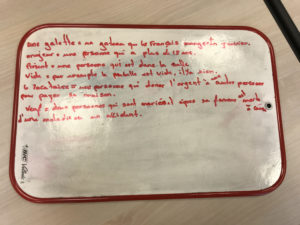 une galette = un gateau que les Français mangent en janvier.
majeur = une personne qui a plus de 18 ans.
Présent = une personne qui est dans la salle
Vide = par exemple la poubelle est vide, il y a rien.
le locataire = une personne qui donne l'argent à autre personne
pour payer sa maison.
Veuf = deux personnes qui sont mariés et après sa femme est morte
à cause
d'une maladie ou un accident.